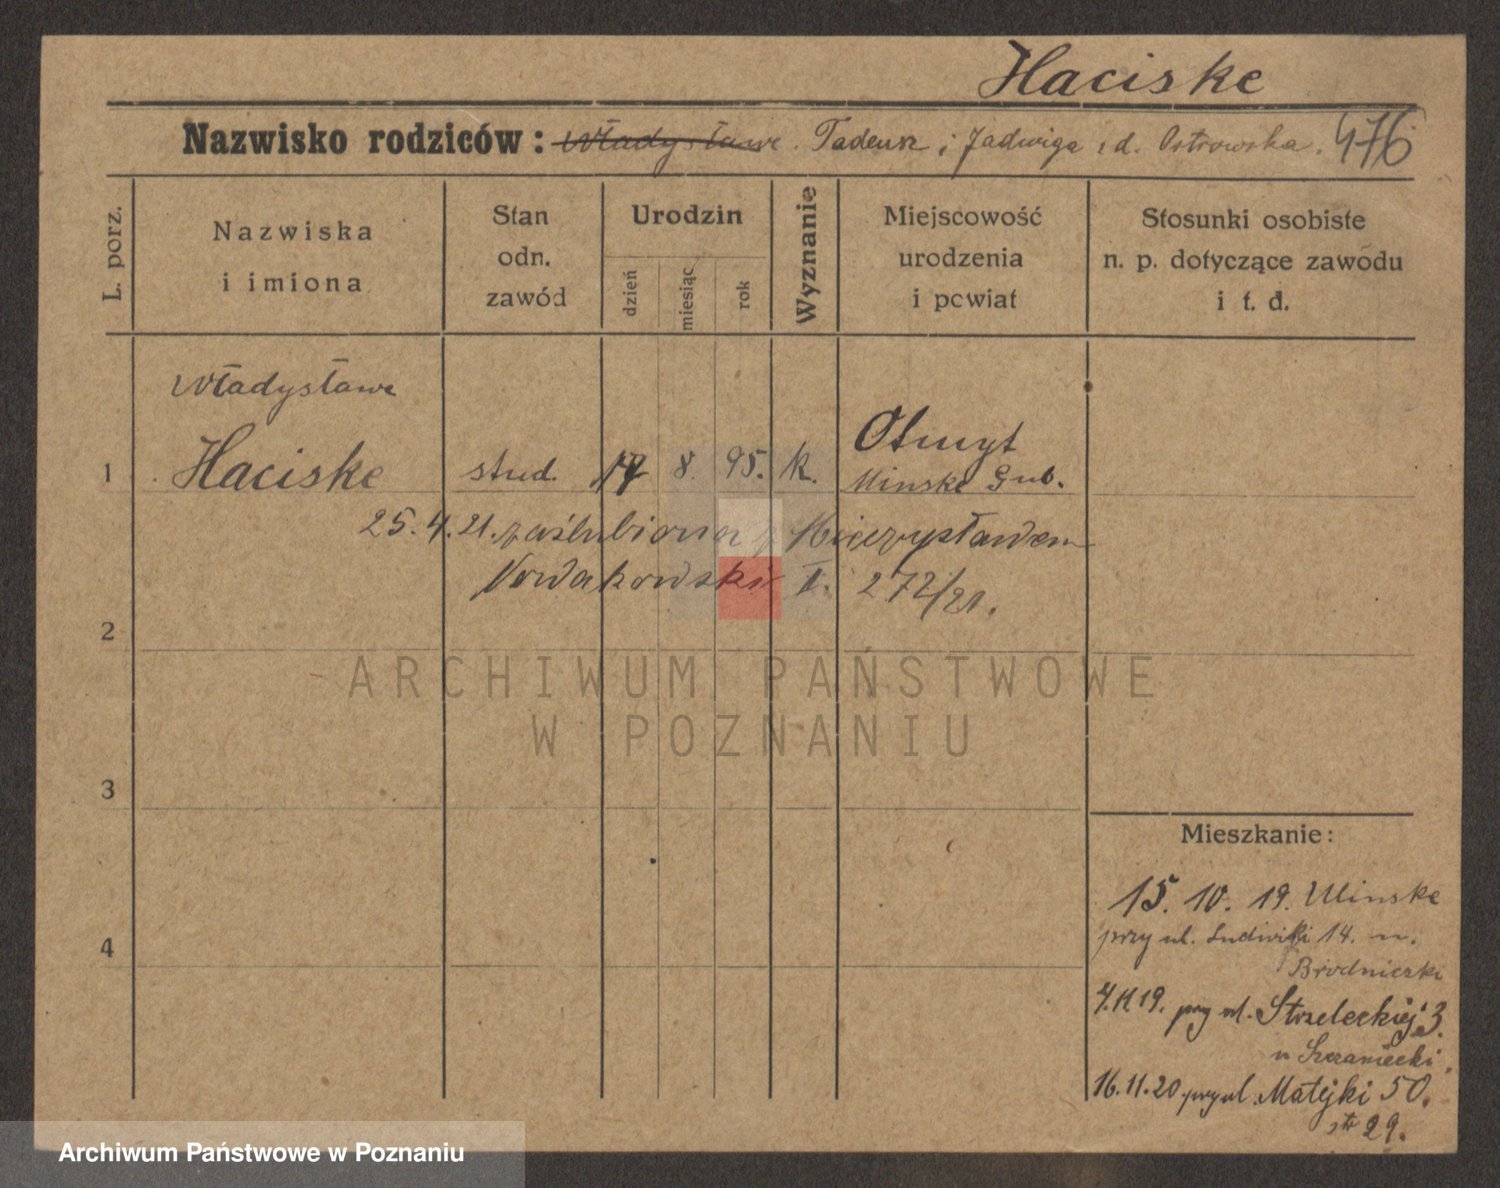 Haciske
Nazwisko rodziców: Władysława. Tadeusz i Jadwiga z d. Ostrowska. 476
L. porz.
Nazwiska
i imiona
Stan
odn.
zawód
Urodzin
dzień
miesiąc
rok
Wyznanie
Miejscowość
urodzenia
i powiat
Stosunki osobiste
n. p. dotyczące zawodu
i t. d.
Władysława
1 Haciske stud. 8. 95. k. Otmyt
Minske Gub.
25.4.21. zaślubiona z Mieczysławem
Nowakowski II. 272/21.
2
ARCHIWUM PAŃSTWOWE
W POZNANIU
3
Mieszkanie:
15. 10. 19. Minske
przy ul. Ludwiki 14. u.
4
Brodniczki
4.11.19. przy ul. Strzeleckiej 3.
u Szczaniecki.
16.11.20 przy ul. Matejki 50.
29.
Archiwum Państwowe w Poznaniu